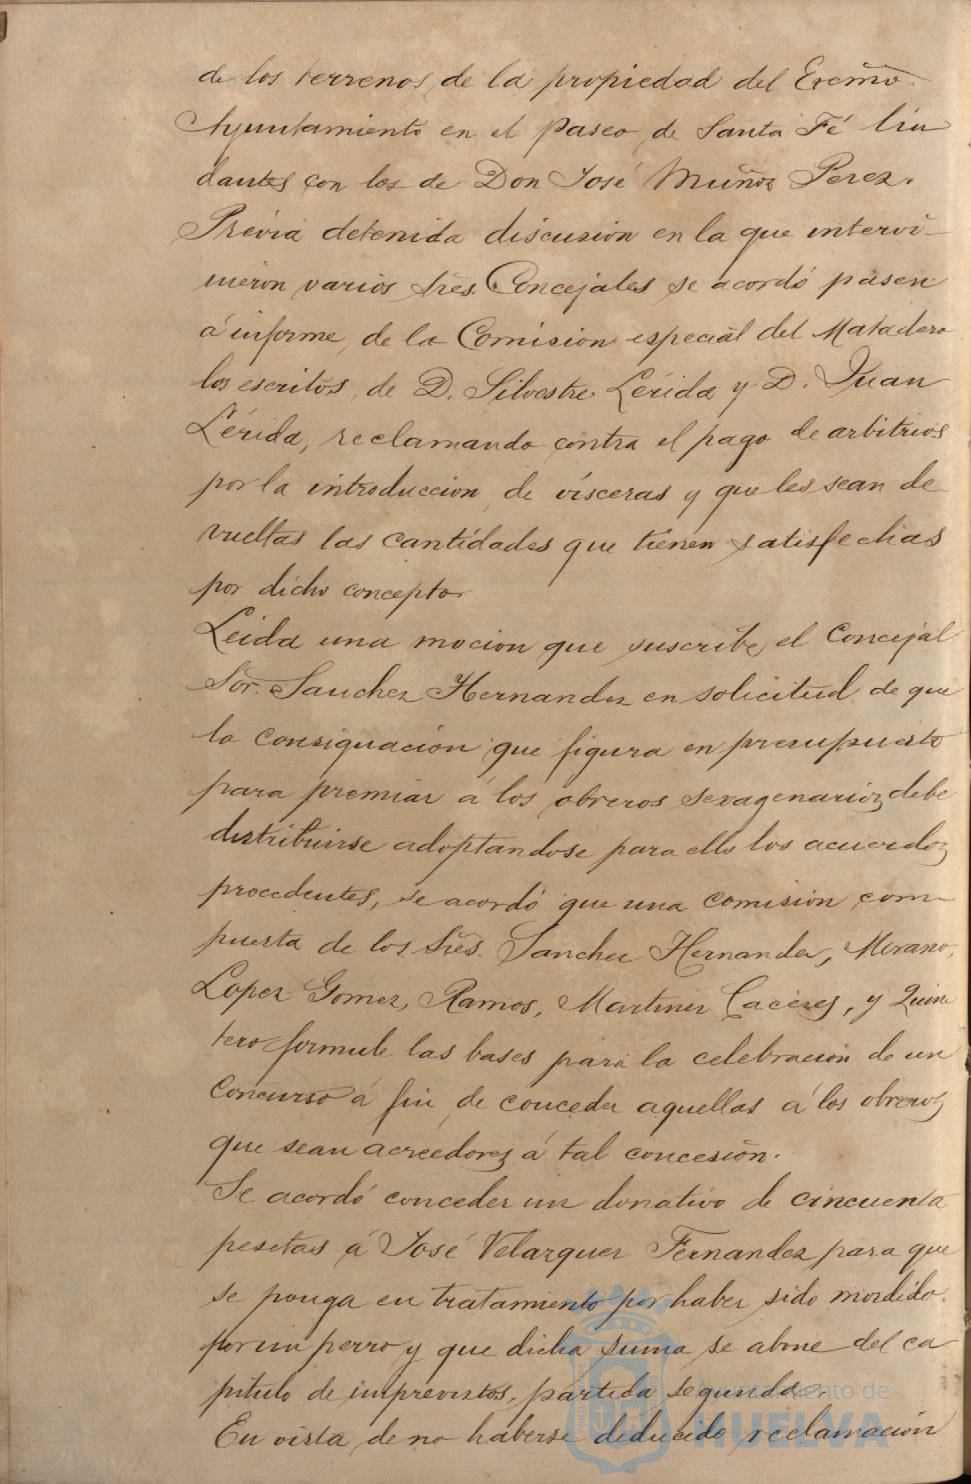 de los terrenos de la propiedad del Excmõ.
Ayuntamiento en el paseo de Santa Fé lin
dantes con los de Don José Muñoz Perez.
Prévia detenida discusion en la que intervi-
nieron varios Srẽs. Concejales se acordó pasen
á informe de la Comision especial del Matadero
los escritos de D. Silvestre Lérida y D. Juan
Lérida, reclamando contra el pago de arbitrios
por la introduccion de vísceras y que les sean de
vueltas las cantidades que tienen satisfechas
por dicho concepto.
Leida una mocion que suscribe el Concejal
Sor. Sanchez Hernandez en solicitud de que
la consignación que figura en presupuesto
para premiar á los obreros sexagenarios debe
distribuirse adoptandose para ello los acuerdos
procedentes, se acordó que una comisión com-
puesta de los Srẽs. Sanchez Hernandez, Morano,
Lopez Gomez, Ramos, Martinez Cacéres, y Quin
tero formule las bases para la celebración de un
concurso á fin de conceder aquellas á los obreros
que sean acreédores á tal concesión.
Se acordó conceder un donativo de cincuenta
pesetas á José Velazquez Fernandez para que
se ponga en tratamiento por haber sido mordido
por un perro y que dicha suma se abone del ca
pitulo de imprevistos, partida segunda.
En vista de no haberse deducido reclamación
Ayuntamiento de
HUELVA